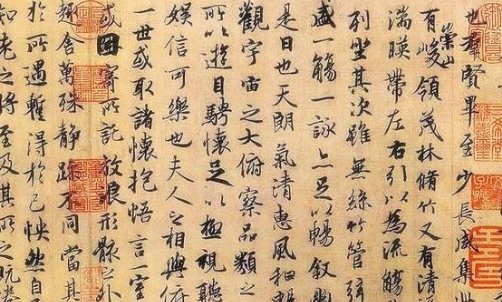 也群賢畢至少長咸集此
有崇山峻領茂林脩竹又有清
湍暎帶左右引以為流觴
列坐其次雖無絲竹管弦
盛一觴一詠亦足以暢敘
是日也天朗氣清惠風和暢
觀宇宙之大俯察品類
所以遊目騁懷足以極視聽
娛信可樂也夫人之相與俯
一世或取諸懷抱悟言一室
或因寄所託放浪形骸之外
趣舍萬殊靜躁不同當其
於所遇暫得於己怏然自
知老之將至及其所之既惓